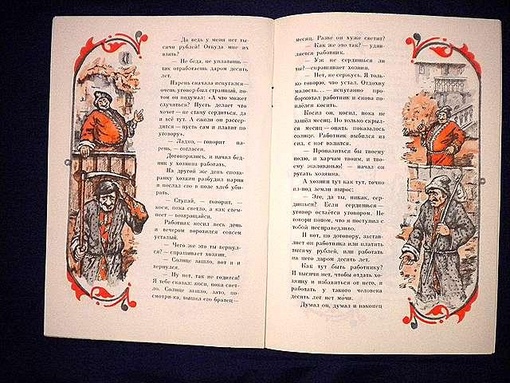 — Да ведь у меня нет ты-
сячи рублей! Откуда мне их
взять?
— Не беда, не уплатишь,
так отработаешь даром десять
лет.
Парень сначала испугался —
очень уговор был странный, по-
том он подумал: «А что может
случиться? Пусть делает что
хочет — не стану сердиться, да
и всё тут. А ежели он рассер-
дится — пусть сам и платит по
уговору».
— Ладно, — говорит па-
рень, — согласен.
Договорились, и начал бед-
няк у хозяина работать.
На другой же день споза-
ранку хозяин разбудил парня
и послал его в поле хлеб уби-
рать.
— Ступай, — говорит, —
коси, пока светло, а как стем-
неет — возвращайся.
Работник косил весь день
и вечером воротился совсем
усталый.
— Чего же это ты вернул-
ся? — спрашивает хозяин.
— Солнце зашло, вот и я
вернулся.
— Ну нет, так не годится!
Я тебе сказал: коси, пока свет-
ло. Солнце зашло, зато, по-
смотри-ка, вышел его братец —
месяц. Разве он хуже светит?
— Как же это так? — удив-
ляется работник.
— Уж не сердишься ли
ты? — спрашивает хозяин.
— Нет, не сержусь. Я толь-
ко говорю, что устал. Отдохну
малость... — испуганно про-
бормотал работник и снова по-
плёлся косить.
Косил он, косил, пока не
зашёл месяц. Но только скрыл-
ся месяц — опять показалось
солнце. Работник выбился из
сил, с ног валится.
— Провалиться бы твоему
полю, и харчам твоим, и тво-
ему жалованью! — начал он
ругать хозяина.
А хозяин тут как тут, точно
из-под земли вырос:
— Эге, да ты, никак, сер-
дишься? Если сердишься —
уговор остаётся уговором. Не
говори потом, что я поступил с
тобой несправедливо.
И вот, по договору, застав-
ляет он работника или платить
тысячу рублей, или работать
на него даром десять лет.
Как тут быть работнику?
И тысячи нет, чтобы отдать хо-
зяину и избавиться от него, и
работать у такого человека
десять лет нет мочи.
Думал он, думал и наконец